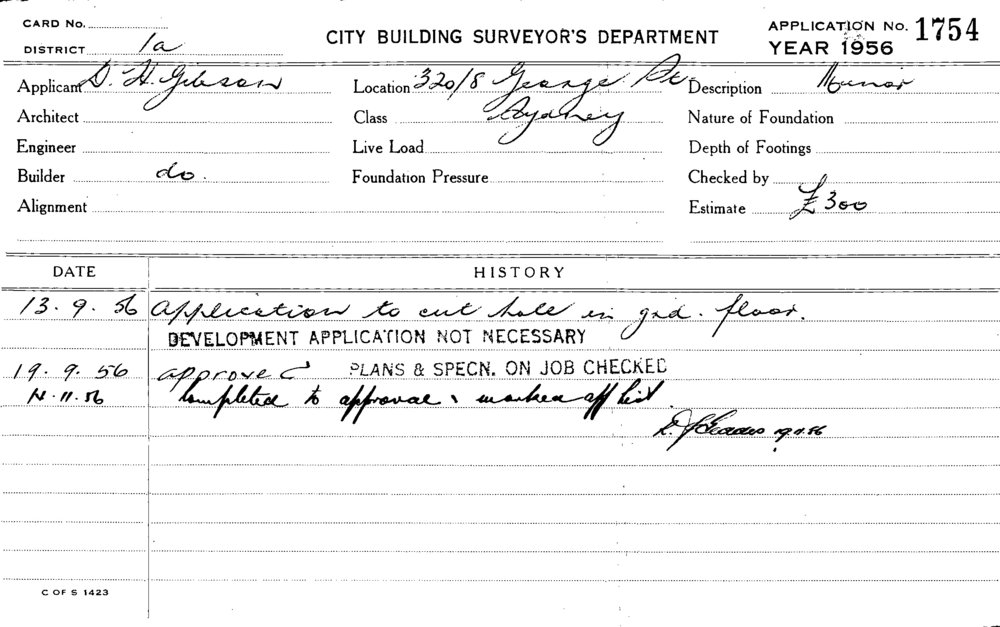 CARD No.
DISTRICT 1a
CITY BUILDING SURVEYOR'S DEPARTMENT
APPLICATION No. 1754
YEAR 1956
Applicant D. H. Gibson Location 320/8 George St Description Minor
Architect Class Sydney Nature of Foundation
Engineer Live Load Depth of Footings
Builder do. Foundation Pressure Checked by
Alignment Estimate £300
DATE HISTORY
13.9.56 Application to cut hole in grd. floor.
DEVELOPMENT APPLICATION NOT NECESSARY
19.9.56 approved PLANS & SPECN. ON JOB CHECKED
.11.56 Completed to approval & marked off list.
C OF S 1423